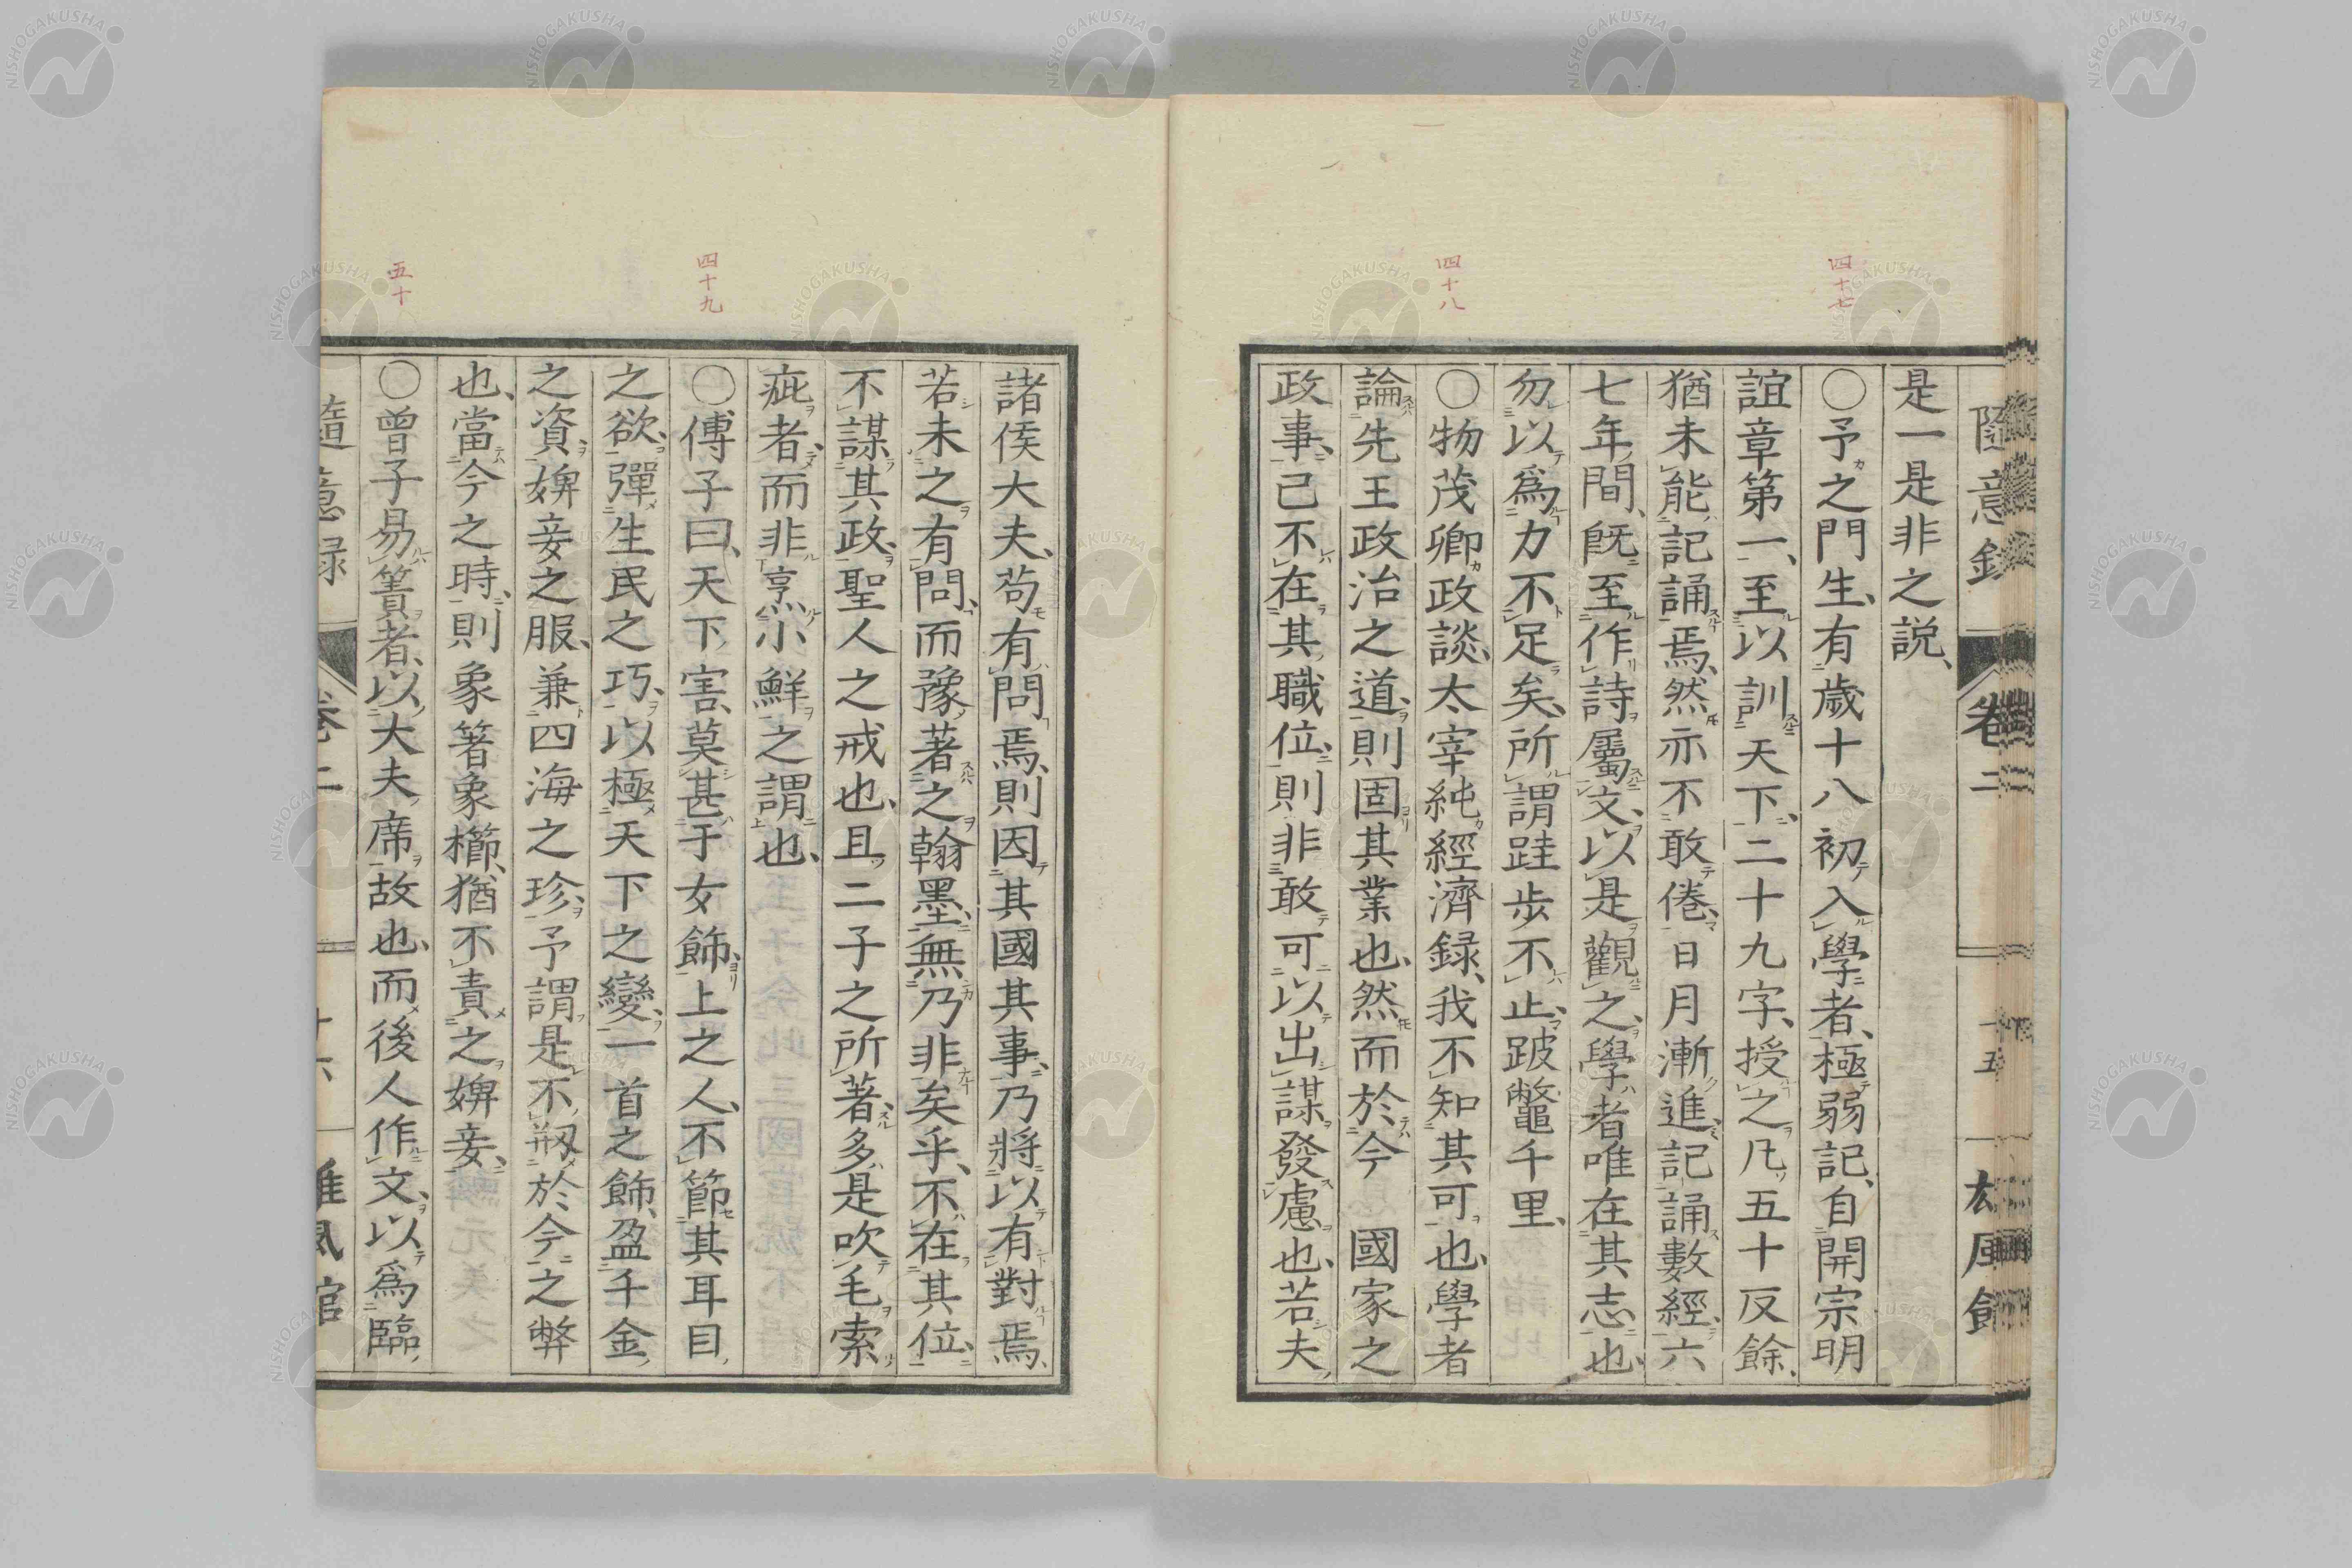 四十七
四十八
隨意錄 卷二 十五 雄風館
是一是非之説、
〇予之門生、有歳十八初入學者、極弱記、自開宗明
誼章第一、至以訓天下、二十九字、授之凡五十反餘、
猶未能記誦焉、然亦不敢倦、日月漸進、記誦數經、六
七年間、既至作詩屬文、以是觀之、學者唯在其志也、
勿以爲力不足矣、所謂跬歩不止、跛鼈千里、
〇物茂卿政談、太宰純經濟録、我不知其可也、學者
論先王政治之道、則固其業也、然而於今 國家之
政事、己不在其職位、則非敢可以出謀發慮也、若夫
四十九
五十
諸侯大夫、苟有問焉、則因其國其事、乃將以有對焉、
若未之有問、而豫著之翰墨、無乃非矣乎、不在其位、
不謀其政、聖人之戒也、且二子之所著、多是吹毛索
疵者、而非烹小鮮之謂也、
〇傅子曰、天下害、莫甚于女飾、上之人、不節其耳目
之欲、殫生民之巧、以極天下之變、一首之飾、盈千金
之資、婢妾之服、兼四海之珍、予謂是不翅於今之弊
也、當今之時、則象箸象櫛、猶不責之婢妾、
〇曾子易簀者、以大夫席故也、而後人作文、以爲臨
隨意録 卷二 十六 雄風館
NISHOGAKUSHA